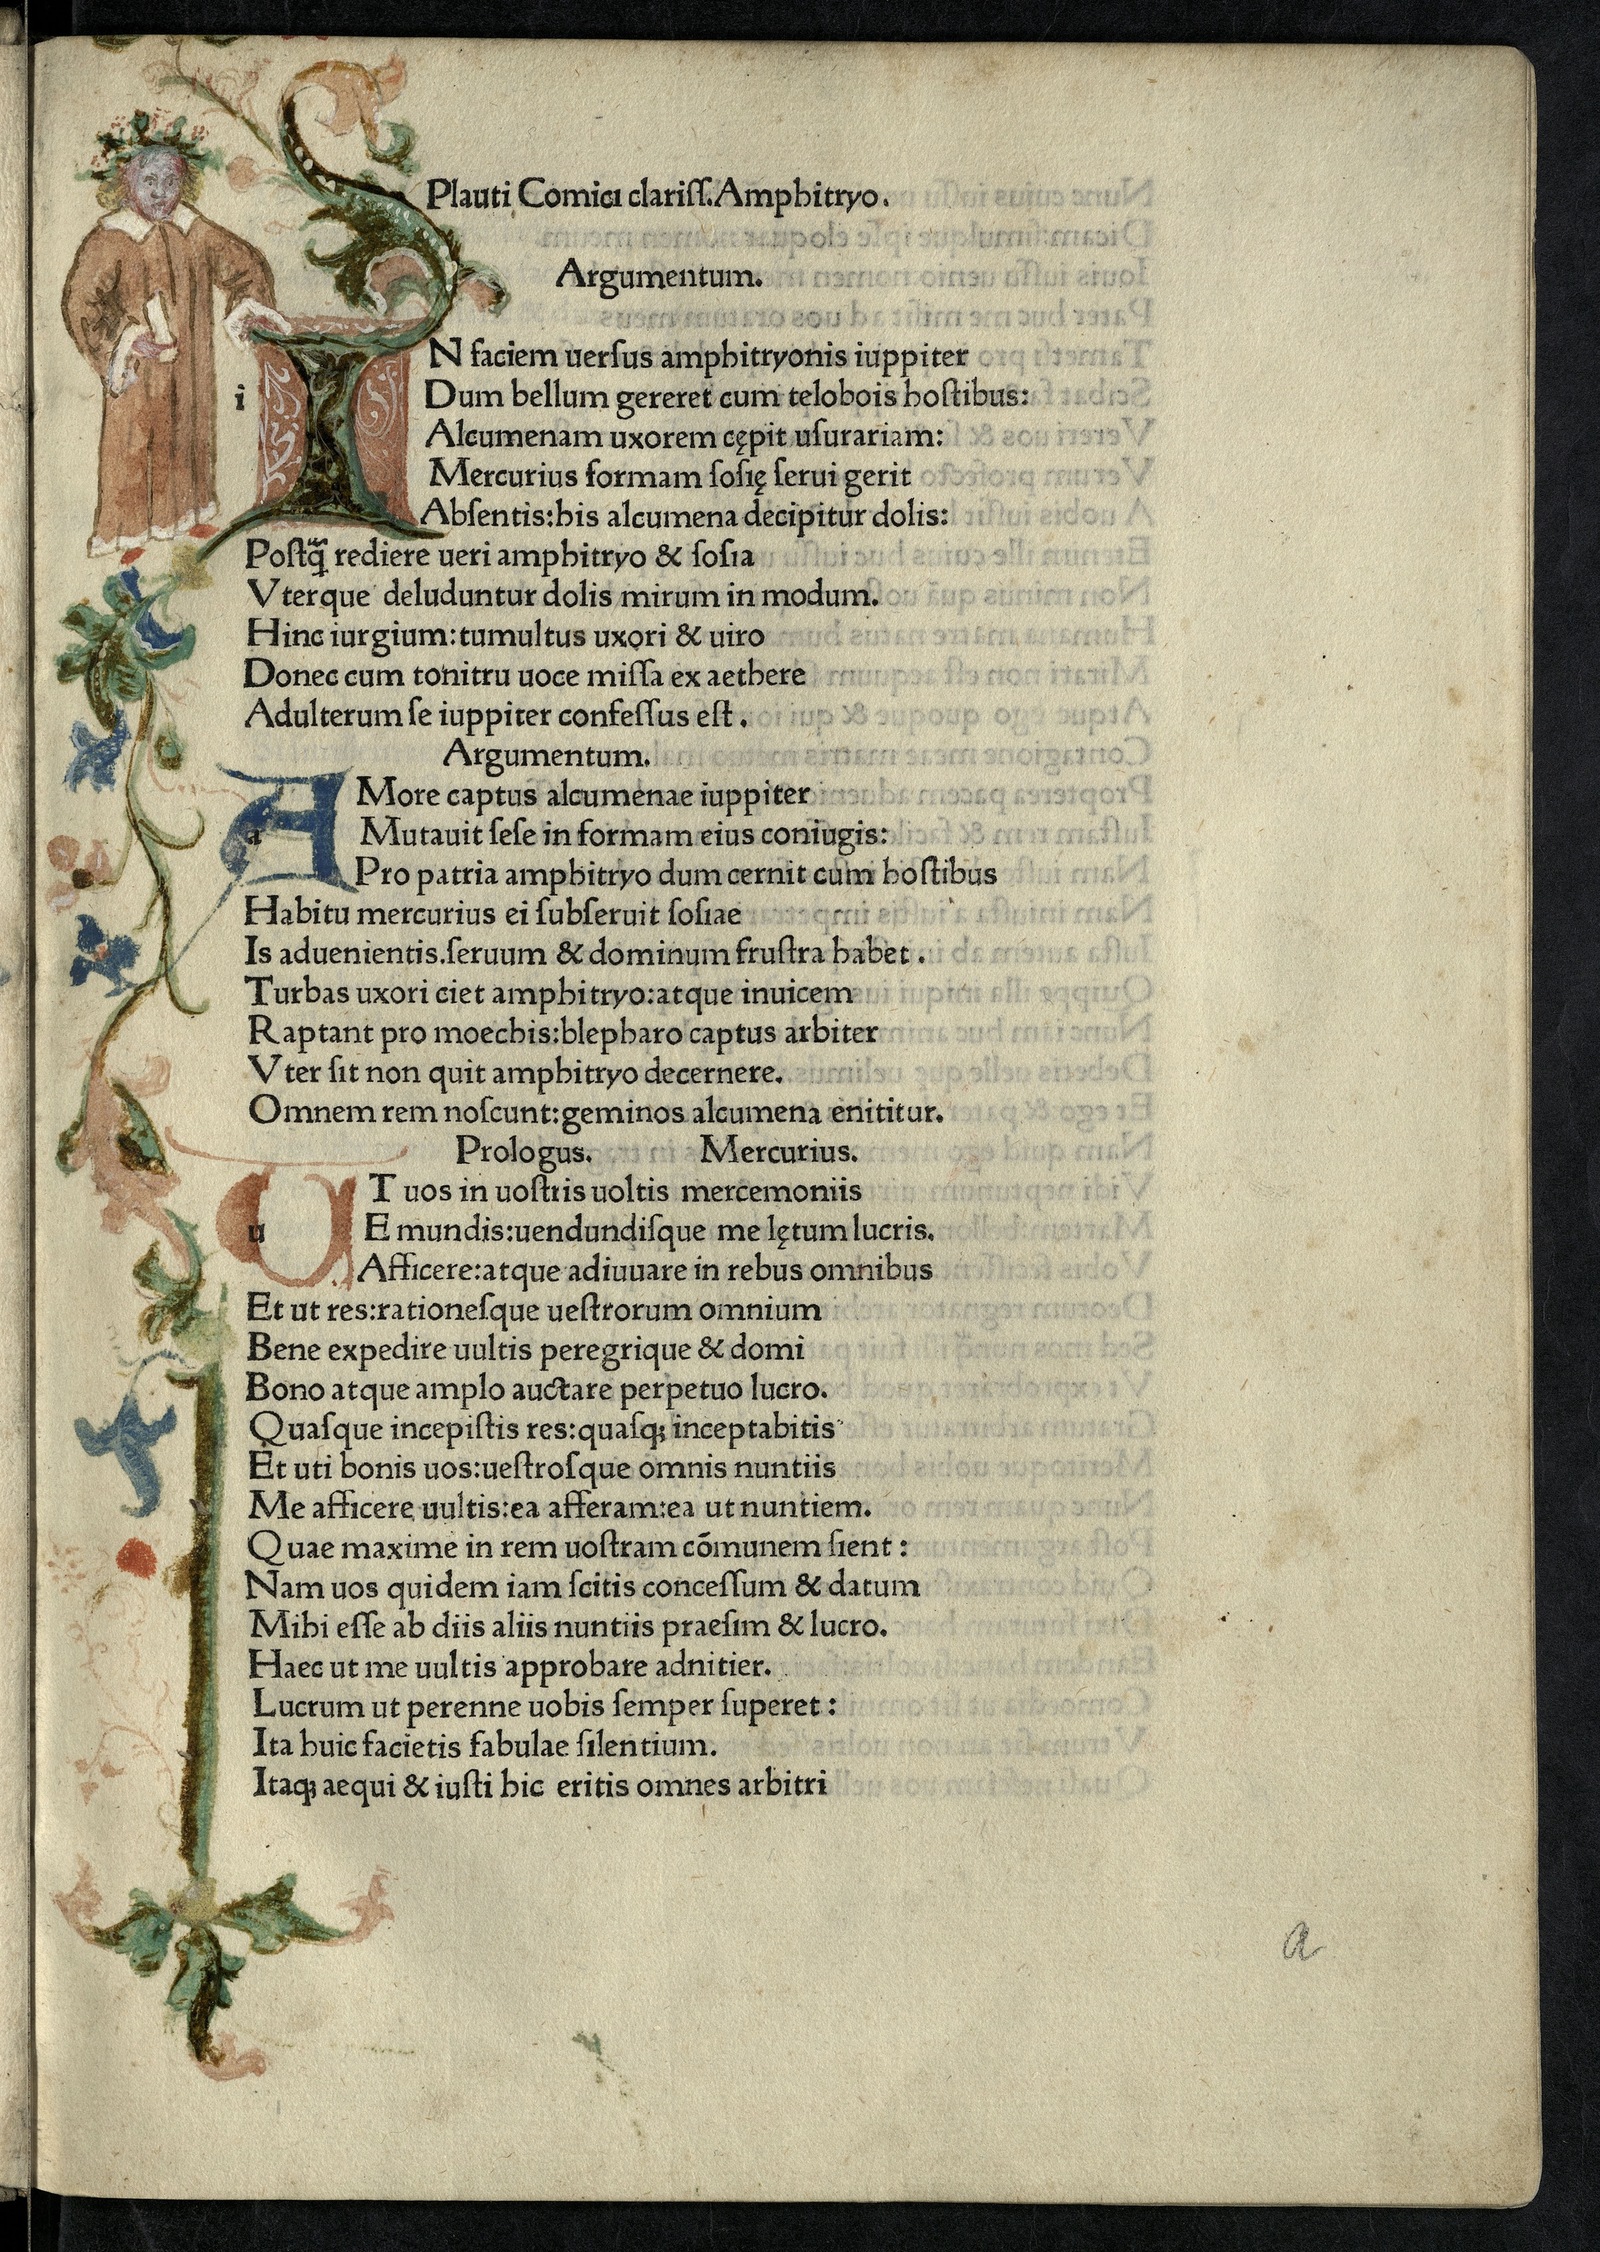 Plauti Comici clariſſ.Amphitryo.
Argumentum.
IN faciem uerſus amphitryonis iuppiter
i Dum bellum gereret cum telobois hoſtibus:
Alcumenam uxorem cępit uſurariam:
Mercurius formam ſoſię ſerui gerit
Abſentis:his alcumena decipitur dolis:
Poſtq̃ rediere ueri amphitryo & ſoſia
Vterque deluduntur dolis mirum in modum.
Hinc iurgium:tumultus uxori & uiro
Donec cum tonitru uoce miſſa ex aethere
Adulterum ſe iuppiter confeſſus eſt.
Argumentum.
AMore captus alcumenae iuppiter
a Mutauit ſeſe in formam eius coniugis:
Pro patria amphitryo dum cernit cum hoſtibus
Habitu mercurius ei ſubſeruit ſoſiae
Is aduenientis.ſeruum & dominum fruſtra habet.
Turbas uxori ciet amphitryo:atque inuicem
Raptant pro moechis:blepharo captus arbiter
Vter ſit non quit amphitryo decernere.
Omnem rem noſcunt:geminos alcumena enititur.
Prologus. Mercurius.
UT uos in uoſtris uoltis mercemoniis
u Emundis:uendundiſque me lętum lucris.
Afficere:atque adiuuare in rebus omnibus
Et ut res:rationeſque ueſtrorum omnium
Bene expedire uultis peregrique & domi
Bono atque amplo auctare perpetuo lucro.
Quaſque incepiſtis res:quaſq; inceptabitis
Et uti bonis uos:ueſtroſque omnis nuntiis
Me afficere uultis:ea afferam:ea ut nuntiem.
Quae maxime in rem uoſtram cōmunem ſient:
Nam uos quidem iam ſcitis conceſſum & datum
Mihi eſſe ab diis aliis nuntiis praeſim & lucro.
Haec ut me uultis approbare adnitier.
Lucrum ut perenne uobis ſemper ſuperet:
Ita huic facietis fabulae ſilentium.
Itaq; aequi & iuſti hic eritis omnes arbitri
a